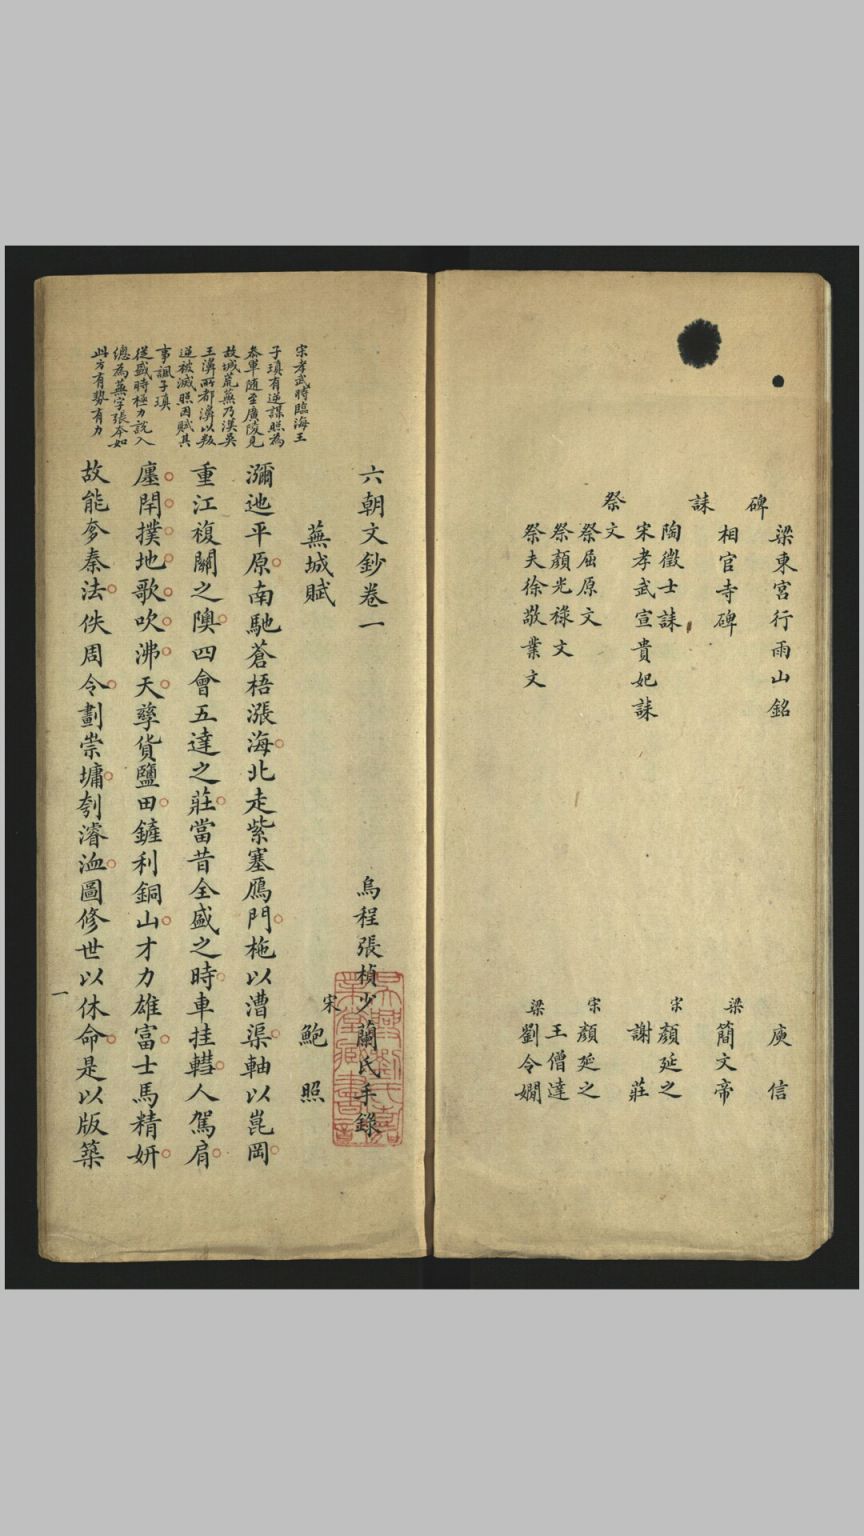 梁東宮行雨山銘 庾信
碑
相官寺碑 梁 簡文帝
誄
陶徵士誄 宋 顏延之
宋孝武宣貴妃誄 謝莊
祭文
祭屈原文 宋 顏延之
祭顏光祿文 王僧達
祭夫徐敬業文 梁 劉令嫺
六朝文鈔卷一 烏程張楨少蘭氏手錄
吳興劉氏嘉
業堂藏書印
蕪城賦 宋 鮑照
宋孝武時臨海王
子瑱有逆謀照為
叅軍隨至廣陵見
故城荒蕪乃漢吳
王濞所都濞以叛
逆被滅照因賦其
事諷子瑱
從盛時極力說入
總為蕪字張本如
此方有勢有力
瀰迆平原南馳蒼梧漲海北走紫塞鴈門柂以漕渠軸以崑岡
重江複關之隩四會五達之莊當昔全盛之時車挂轊人駕肩
廛閈撲地歌吹沸天孳貨鹽田鏟利銅山才力雄富士馬精妍
故能奓秦法佚周令劃崇墉刳濬洫圖修世以休命是以版築
一